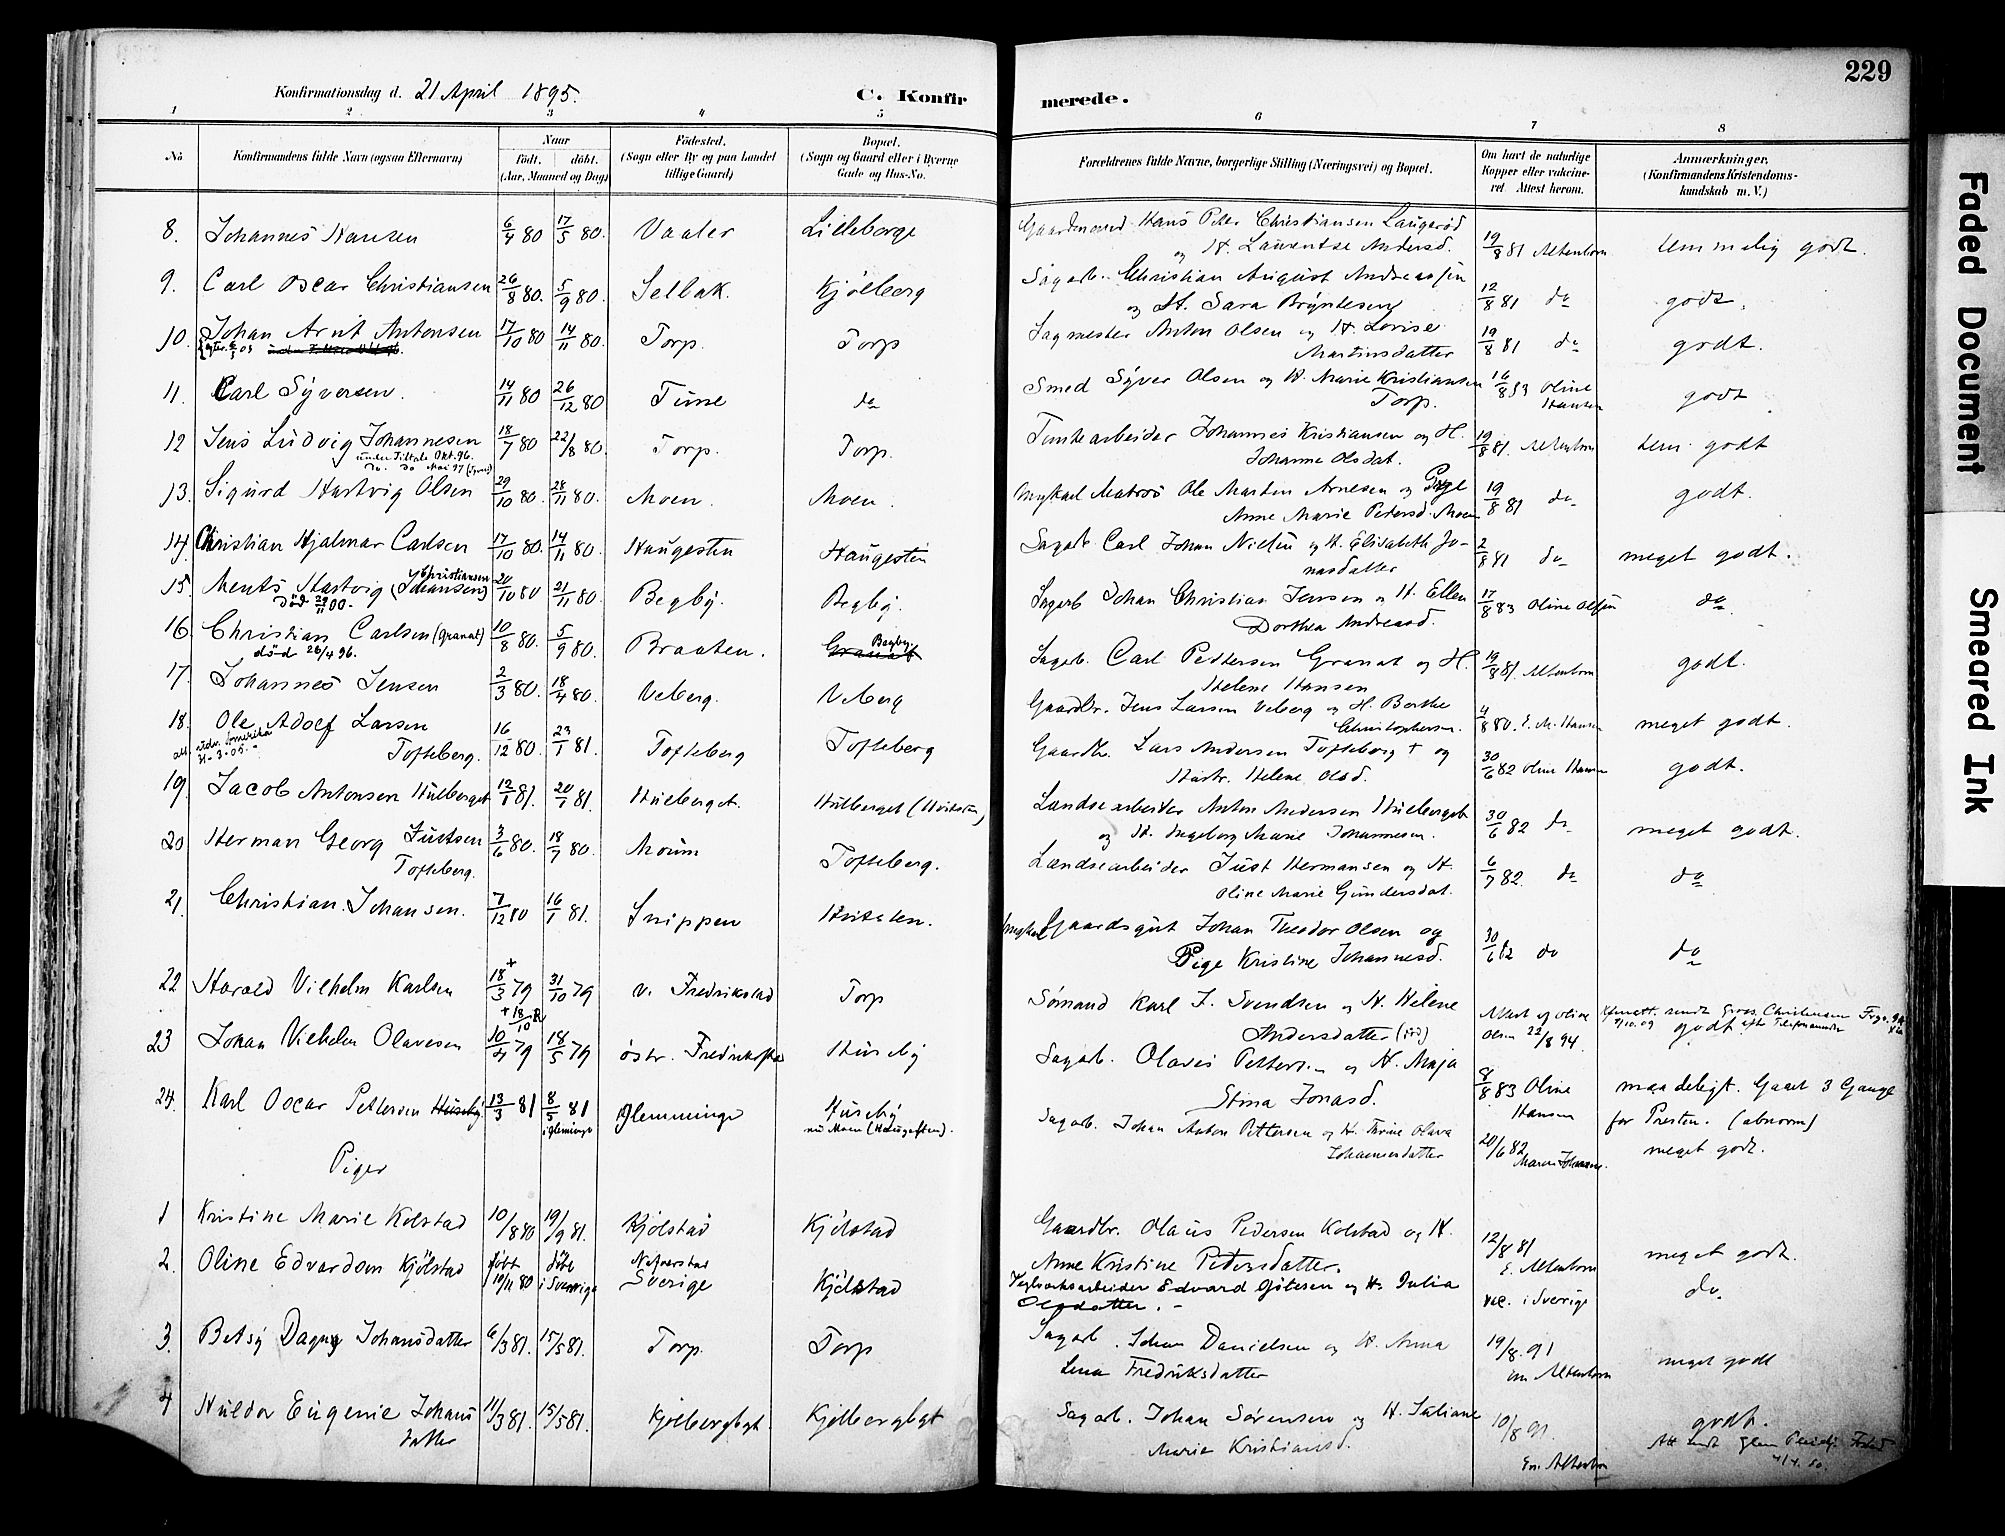 229
Konfirmationsdag d. 21 April 1895.
C. Konfirmerede.
1 2 3 4 5 6 7 8
No
Konfirmandens fulde Navn (ogsaa Efternavn)
Naar
født. døbt.
(Aar, Maaned og Dag)
Födested.
(Sogn eller By og paa Landet
tillige Gaard)
Bopæl.
(Sogn og Gaard eller i Byerne
Gade og Hus-No.
Forældrenes fulde Navne, borgerlige Stilling (Næringsvei) og Bopæl.
Om havt de naturlige
Kopper eller vakcine-
ret. Attest herom.
Anmærkninger.
(Konfirmandens Kristendoms-
kundskab m. V.)
8. Johannes Hansen 6/4 80 17/5 80. Vaaler Lilleborge Gaardmand Hans Peter Christiansen Laugerød
og H. Laurentse Andersd. 19/8 81 Altenborn temmelig godt.
9. Carl Oscar Christiansen 26/8 80. 5/9 80. Selbak. Kjölberg Sagarb. Christian August Andreassen
og H. Sara Bryntesen 12/8 81 do godt.
10. Johan Arnt Antonsen 17/10 80 14/11 80. Torp. Torp Sagmester Anton Olsen og H. Lovise
Martinsdatter 19/8 81 do godt.
11. Carl Syversen. 14/11 80 26/12 80 Tune do Smed Syver Olsen og H. Marie Kristiansen
Torp. 16/8 83 Oline
Hansen godt
12 Jens Ludvig Johannesen 18/7 80 22/8 80. Torp. Torp. Tomtearbeider Johannes Kristiansen og H.
Johanne Olsdat. 19/8 81. Altenborn tem. godt
under Tiltale Okt. 96.
do. do Mai 97 (Tyveri)
13. Sigurd Hartvig Olsen 29/10 80. 28/11 80. Moen. Moen. Ungkarl Matros Ole Martin Arnesen og Pige
Anne Marie Petersd. Moen 19/8 81 do godt.
14. Christian Hjalmar Carlsen 17/10 80. 14/11 80. Haugesten Haugesten Sagarb. Carl Johan Nielsen og H. Elisabeth Jo-
nasdatter 2/8 81 do meget godt.
15 Ments Hartvig Christiansen (Johansen) 20/10 80 21/11 80. Begby. Begby. Sagarb Johan Christian Jensen og H. Ellen
Dorthea Andreasd. 17/8 83 Oline Olsen do
død 29/11 00.
16. Christian Carlsen (Granat) 10/8 80. 5/9 80. Braaten. Granat Begby. Sagarb. Carl Pettersen Granat og H.
Helene Hansen 19/8 81. Altenborn godt.
død 26/4 96.
17. Johannes Jensen 2/3 80. 18/4 80. Veberg. Veberg Gaardbr. Jens Larsen Veberg og H. Berthe
Christophersen. 4/8 80. E. M. Hansen meget godt.
18. Ole Adolf Larsen
Tofteberg. 16/12 80. 23/1 81. Tofteberg Tofteberg Gaardbr. Lars Andersen Tofteberg + og
Hustr. Helene Olsd. 30/6 82 Oline Hansen godt.
19. Jacob Antonsen Hulberget 12/1 81. 20/1 81. Hulberget. Hulberget (Hvitsten) Landsearbeider Anton Andersen Hulberget
og H. Ingeborg Marie Johannesen. 30/6 82 do meget godt.
20 Herman Georg Justsen
Tofteberg. 3/6 80. 18/7 80. Moum Tofteberg. Landsearbeider Just Hermansen og H.
Oline Marie Gundersdat. 6/7 82. do do
21. Christian Johansen. 7/12 80 16/1 81. Snippen Hvitsten. Ungkarl Gaardsgut Johan Theodor Olsen og
Pige Kristine Johannesd. 30/6 82 do do
22 Harald Vilhelm Karlsen 18/3 79 31/10 79 v. Fredrikstad Torp Sömand Karl J. Svendsen og H. Helene
Andersdatter (död) Attest af Oline
Olsen 22/8 94. godt
23 Johan Vilhelm Olavesen 10/4 79 18/5 79 östr. Fredrikstad Huseby Sagarb. Olaves Petters.n og H. Maja
Stina Jonasd. 8/8 83 Oline
Hansen maadeligt. Gaaet 3 Gange
for Presten. (abnorm)
24. Karl Oscar Pettersen Huseby 13/3 81 8/5 81
i Glemminge Glemminge Huseby
nu Moen (Haugesten). Sagarb. Johan Anton Pettersen og H. Thrine Olava
Johannesdatter 20/6 82
Maren Johannes. meget godt.
Piger
1 Kristine Marie Kolstad 10/8 80 19/9 81. Kjölstad Kjölstad Gaardbr. Olaus Pedersen Kolstad og H.
Anne Kristine Petersdatter. 12/8 81
E. Altenborn meget godt.
2. Oline Edvardsen Kjölstad født
10/11 80 döbt
i Sverrige Sverige Kjölstad Teglverksarbeider Edvard Götesen og H. Julia
Olsdatter. – vac. i Sverige do.
3. Betsy Dagny Johansdatter 6/3 81. 15/5 81. Torp. Torp. Sagarb. Johan Danielsen og H. Anna
Lena Fredriksdatter 19/8. 91
Em Altenborn meget godt
4 Huldor Eugenie Johans
datter 11/3 81. 15/5 81. Kjölbergbgt. Kjölbergbgt Sagarb. Johan Sørensen og H. Juliane
Marie Kristiansd. 10/8 91.
Em. Altenborn godt.
Faded Document
Smeared Ink